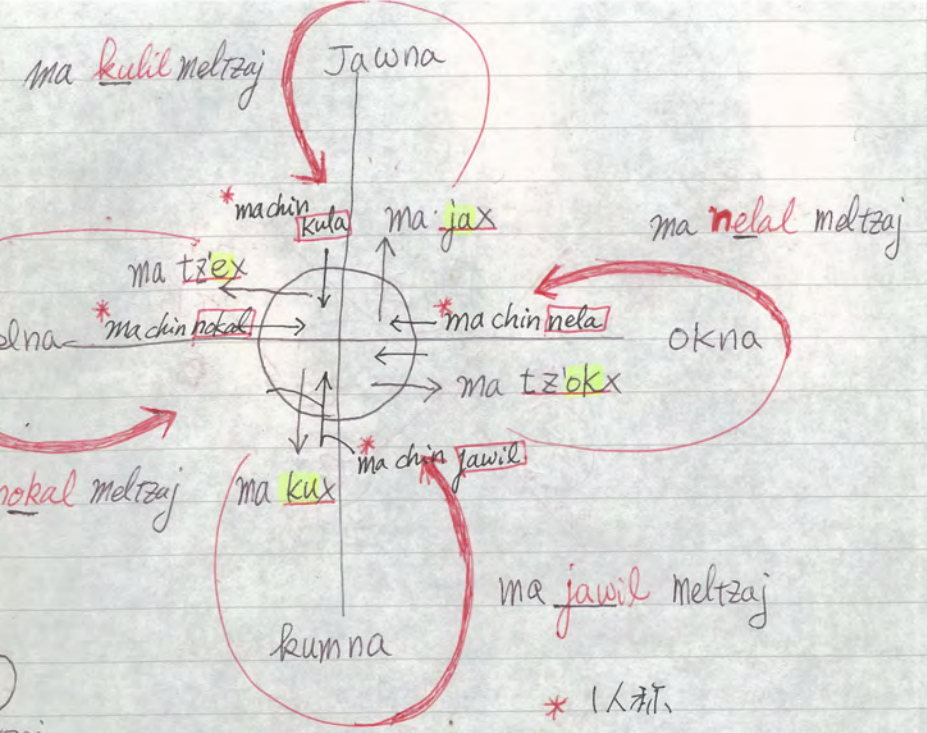 Jawna
ma kulil meltzaj
* machin
kula
ma jax
ma nelal meltzaj
ma tz'ex
* machin nokal
* machin nela
elna
okna
ma tz'okx
* machin jawil
nokal meltzaj
ma kux
ma jawil meltzaj
kumna
* 1人称